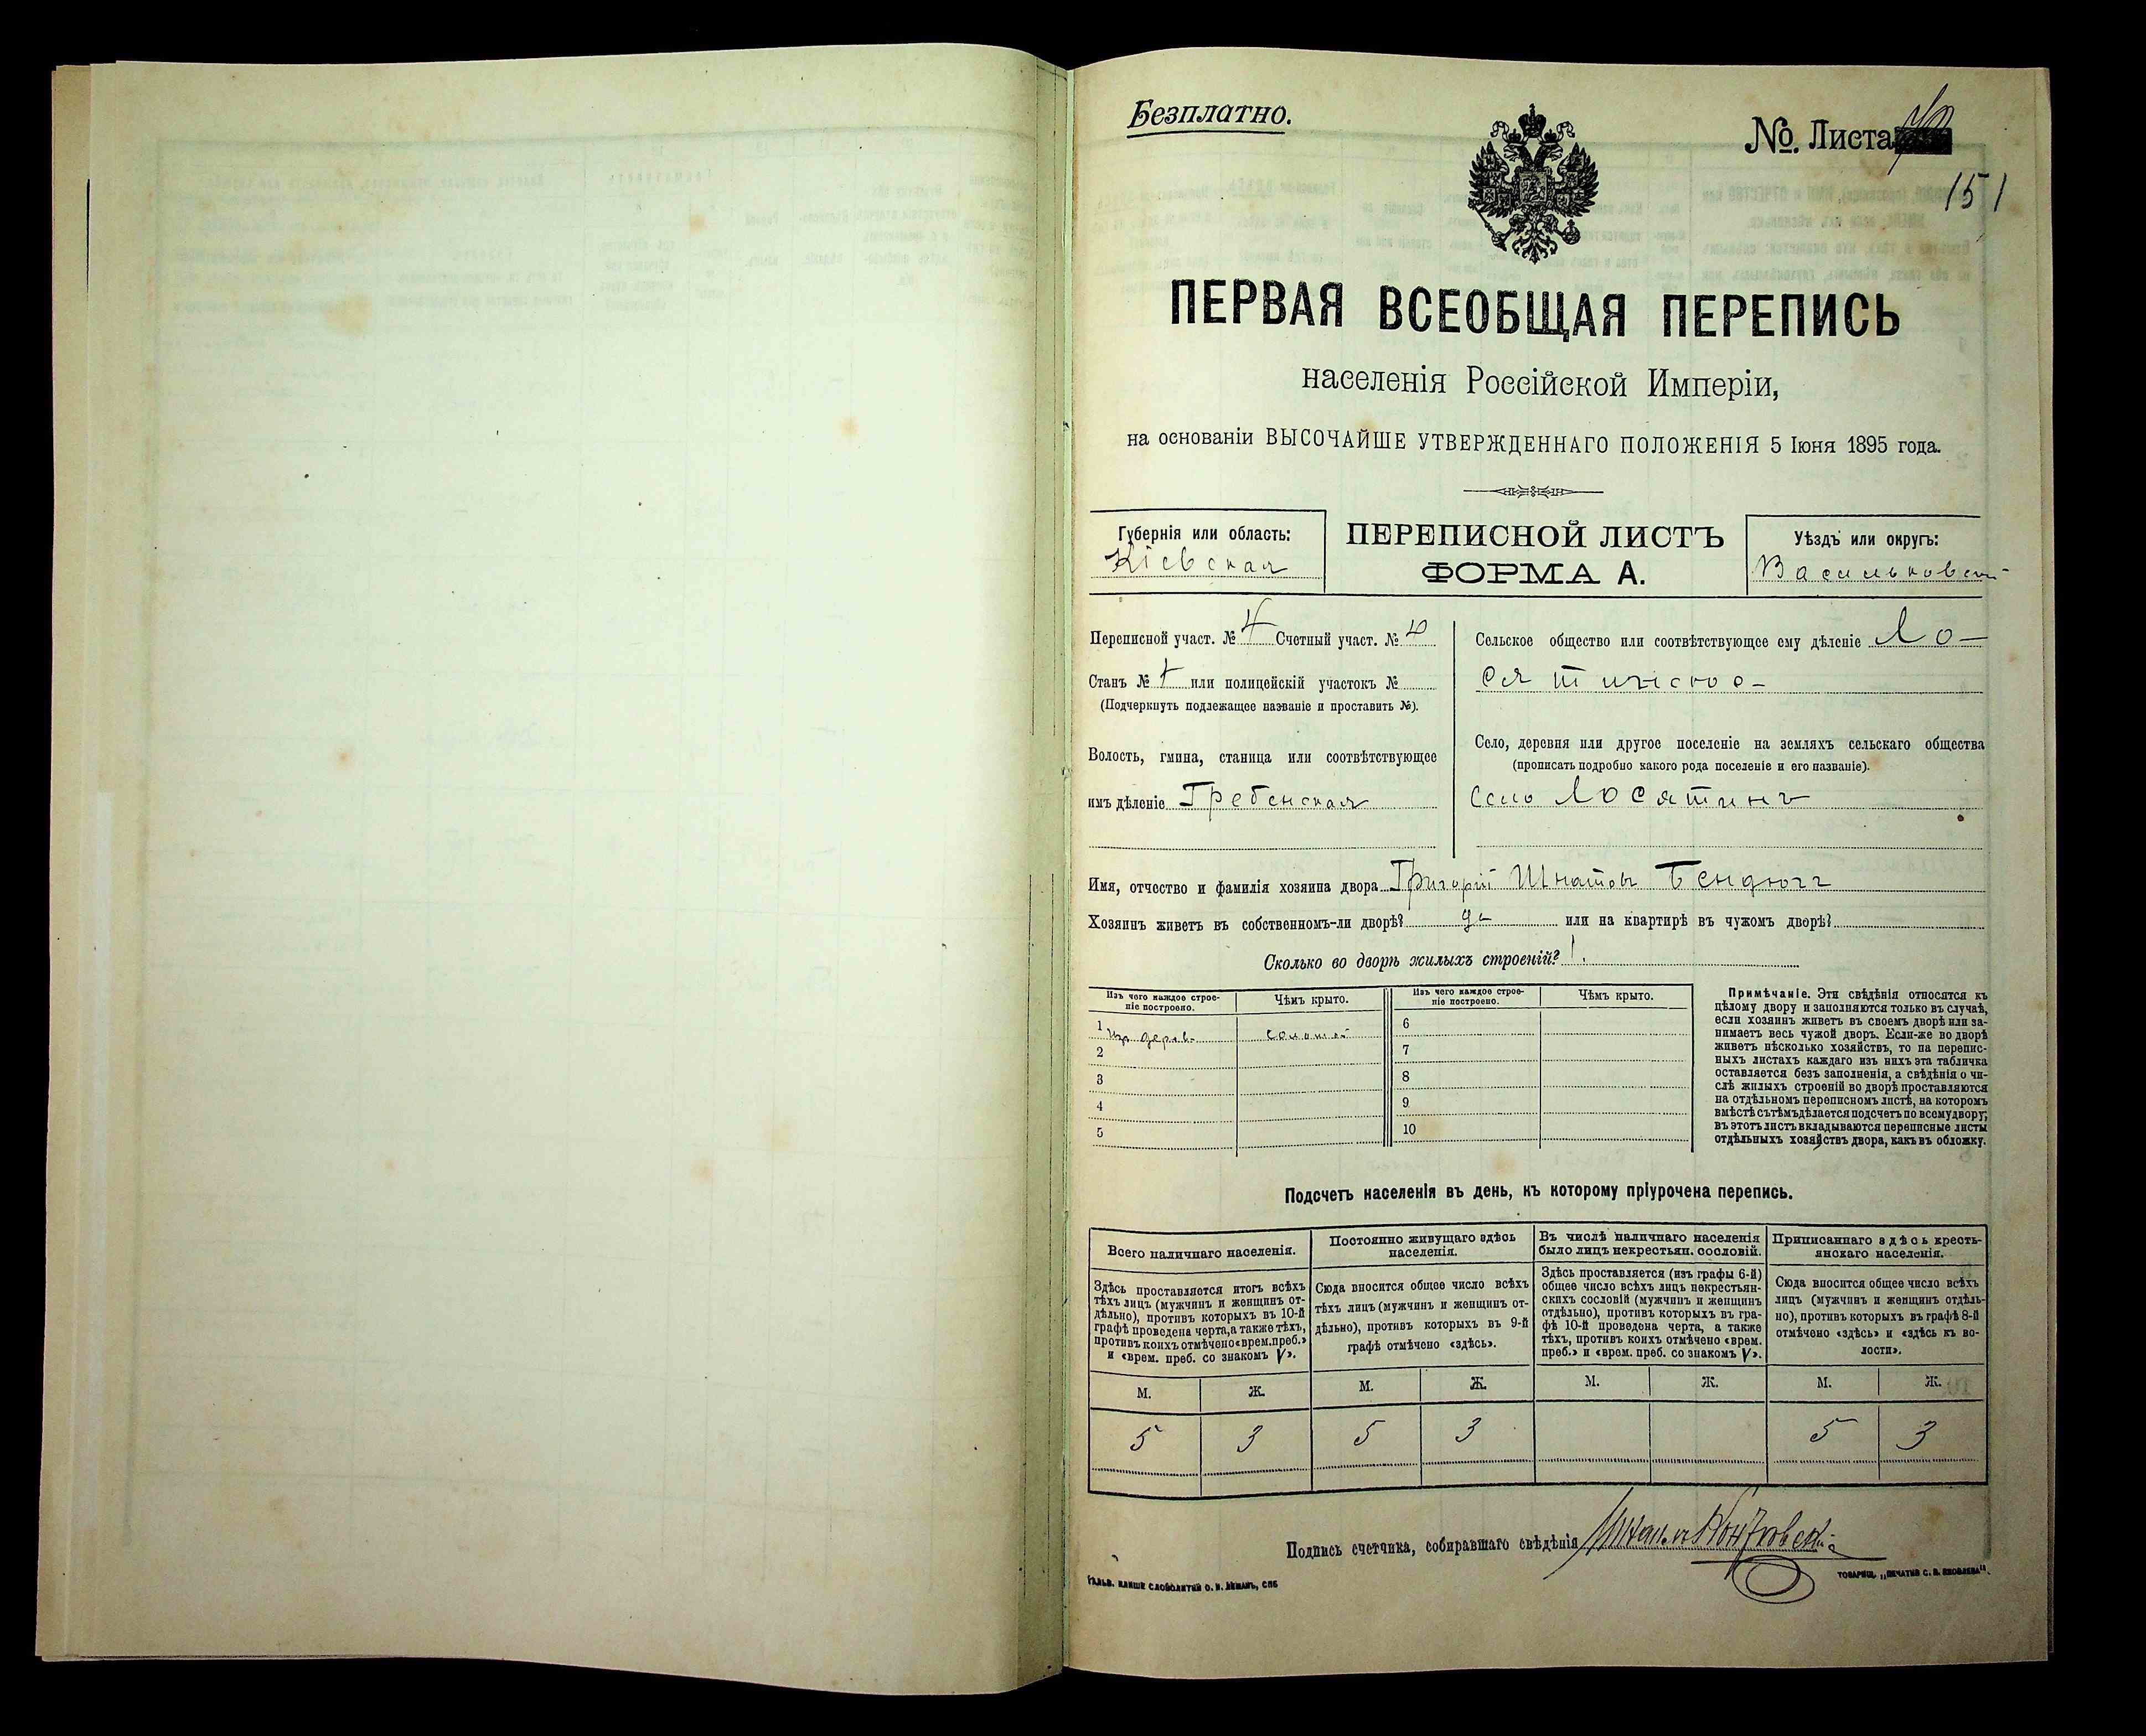 Безплатно.
№. Листа
151
ПЕРВАЯ ВСЕОБЩАЯ ПЕРЕПИСЬ
населенія Россійской Имперіи,
на основаніи ВЫСОЧАЙШЕ УТВЕРЖДЕННАГО ПОЛОЖЕНІЯ 5 Іюня 1895 года.
Губернія или область:
Кіевская
ПЕРЕПИСНОЙ ЛИСТЪ
ФОРМА А.
Уѣздъ или округъ:
Васильковскій
Переписной участ. № 4 Счетный участ. №
Станъ № или полицейскій участокъ №
(Подчеркнуть подлежащее названіе и проставить №).
Волость, гмина, станица или соотвѣтствующее
имъ дѣленіе Гребенская
Сельское общество или соотвѣтствующее ему дѣленіе Ло-
сятинское
Село, деревня или другое поселеніе на земляхъ сельскаго общества
(прописать подробно какого рода поселеніе и его названіе).
Село Лосятинъ
Имя, отчество и фамилія хозяина двора Григорій Игнатовъ Бендюгъ
Хозяинъ живетъ въ собственномъ-ли дворѣ? да или на квартирѣ въ чужомъ дворѣ?
Сколько во дворѣ жилыхъ строеній? 1.
Изъ чего каждое строе-
ніе построено.
Чѣмъ крыто.
Изъ чего каждое строе-
ніе построено.
Чѣмъ крыто.
1 Из дерев. соломой 6
2 7
3 8
4 9
5 10
Примѣчаніе. Эти свѣдѣнія относятся къ
цѣлому двору и заполняются только въ случаѣ,
если хозяинъ живетъ въ своемъ дворѣ или за-
нимаетъ весь чужой дворъ. Если-же во дворѣ
живетъ нѣсколько хозяйствъ, то на перепис-
ныхъ листахъ каждаго изъ нихъ эта табличка
оставляется безъ заполненія, а свѣдѣнія о чи-
слѣ жилыхъ строеній во дворѣ проставляются
на отдѣльномъ переписномъ листѣ, на которомъ
вмѣстѣ съ тѣмъ дѣлается подсчетъ по всему двору;
въ этотъ листъ вкладываются переписные листы
отдѣльныхъ хозяйствъ двора, какъ въ обложку.
Подсчетъ населенія въ день, къ которому пріурочена перепись.
Всего наличнаго населенія.
Здѣсь проставляется итогъ всѣхъ
тѣхъ лицъ (мужчинъ и женщинъ от-
дѣльно), противъ которыхъ въ 10-й
графѣ проведена черта, а также тѣхъ,
противъ коихъ отмѣчено «врем. преб.»
и «врем. преб. со знакомъ V».
Постоянно живущаго здѣсь
населенія.
Сюда вносится общее число всѣхъ
тѣхъ лицъ (мужчинъ и женщинъ от-
дѣльно), противъ которыхъ въ 9-й
графѣ отмѣчено «здѣсь».
Въ числѣ наличнаго населенія
было лицъ некрестьян. сословій.
Здѣсь проставляется (изъ графы 6-й)
общее число всѣхъ лицъ некрестьян-
скихъ сословій (мужчинъ и женщинъ
отдѣльно), противъ которыхъ въ гра-
фѣ 10-й проведена черта, а также
тѣхъ, противъ коихъ отмѣчено «врем.
преб.» и «врем. преб. со знакомъ V».
Приписаннаго здѣсь кресть-
янскаго населенія.
Сюда вносится общее число всѣхъ
лицъ (мужчинъ и женщинъ отдѣль-
но), противъ которыхъ въ графѣ 8-й
отмѣчено «здѣсь» и «здѣсь къ во-
лости».
М. Ж. М. Ж. М. Ж. М. Ж.
5 3 5 3 5 3
Подпись счетчика, собиравшаго свѣдѣнія
ГАЛЬВ. КЛИШЕ СЛОВОЛИТНИ О. И. ЛЕМАНЪ, СПБ
ТОВАРИЩ. „ПЕЧАТНЯ С. П. ЯКОВЛЕВА".